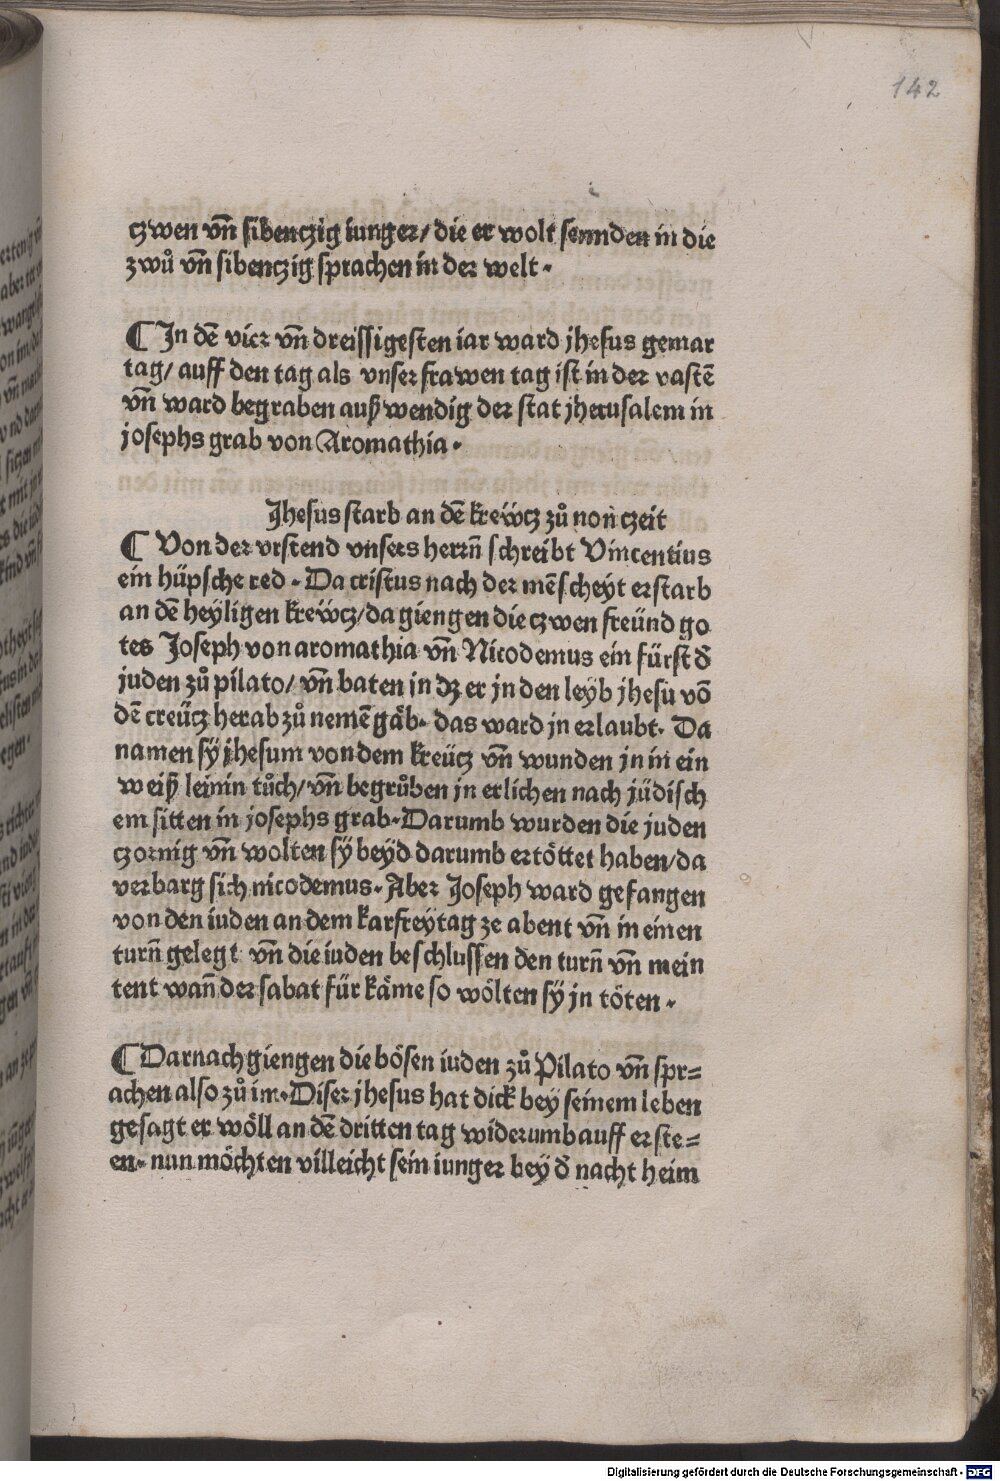 142
czwen vn̄ sibenczig iunger/ die er wolt sennden in die
zwů vn̄ sibenczig sprachen in der welt.
¶ In dē vier vn̄ dreissigesten iar ward jhesus gemar
tag/ auff den tag als vnser frawen tag ist in der vastē
vn̄ ward begraben außwendig der stat jherusalem in
josephs grab von Aromathia.
Jhesus starb an dē krewcz zů non czeit
¶ Von der vrstend vnsers herrn̄ schreibt Vincentius
ein hüpsche red. Da cristus nach der mēscheyt erstarb
an dē heyligen krewcz/ da giengen die czwen freünd go
tes Joseph von aromathia vn̄ Nicodemus ein fürst d̄
juden zů pilato/ vn̄ baten in dz er jn den leyb jhesu vō
dē creücz herab zů nemē gäb. das ward jn erlaubt. Da
namen sÿ jhesum von dem kreücz vn̄ wunden jn in ein
weiß leinin tůch/ vn̄ begrůben jn erlichen nach jüdisch
em sitten in josephs grab. Darumb wurden die juden
czornig vn̄ wolten sÿ beyd darumb ertöttet haben/ da
verbarg sich nicodemus. Aber Joseph ward gefangen
von den iuden an dem karfreytag ze abent vn̄ in einen
turn̄ gelegt vn̄ die iuden beschlussen den turn̄ vn̄ mein
tent wan̄ der sabat für käme so wölten sÿ jn töten.
¶ Darnach giengen die bösen iuden zů Pilato vn̄ spr=
achen also zů im. Diser jhesus hat dick bey seinem leben
gesagt er wöll an dē dritten tag widerumb auff erste=
en. nun möchten villeicht sein iunger bey d̄ nacht heim
Digitalisierung gefördert durch die Deutsche Forschungsgemeinschaft - DFG